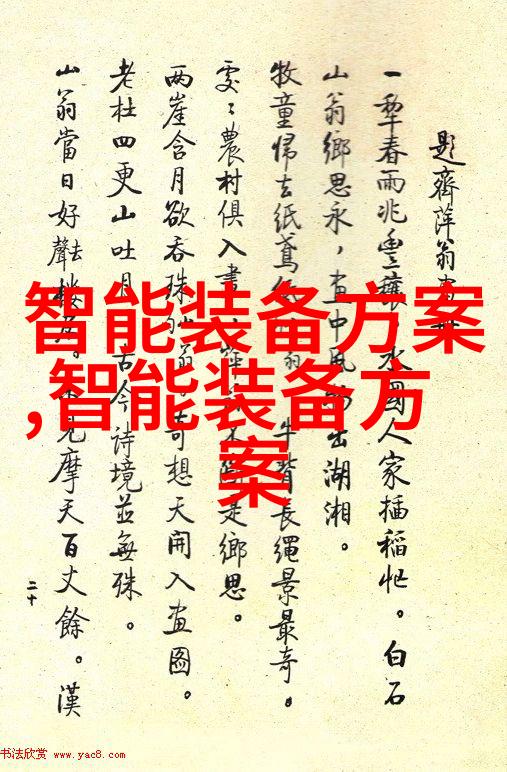 題齊萍翁畫
一犁春雨兆豐穰，水國人家插稻忙。白石
山翁鄉思永，畫中風物出湖湘。
牧童歸去紙鳶 翁 牛背長繩景最奇。
處〻農村俱入畫 是鄉思。
兩崖含月欲吞珠 翁 奇想天開入畫圖。
老杜四更山吐月 古今詩境並無殊。
山翁當日好聲去樓居。 見摩天百丈餘。漢
二十
智能装备方案
,智能装备方
案
书法欣赏 www.yac8.com